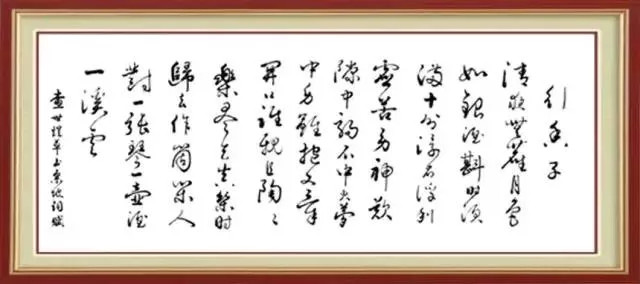 行香子
清夜無塵月色
如銀酒斟時須
滿十分浮名浮利
虛苦勞神歎
隙中駒石中火夢
中身雖抱文章
開口誰親且陶々
樂盡天真幾時
歸去作箇閑人
對一張琴一壺酒
一溪雲
世草书東坡词賦